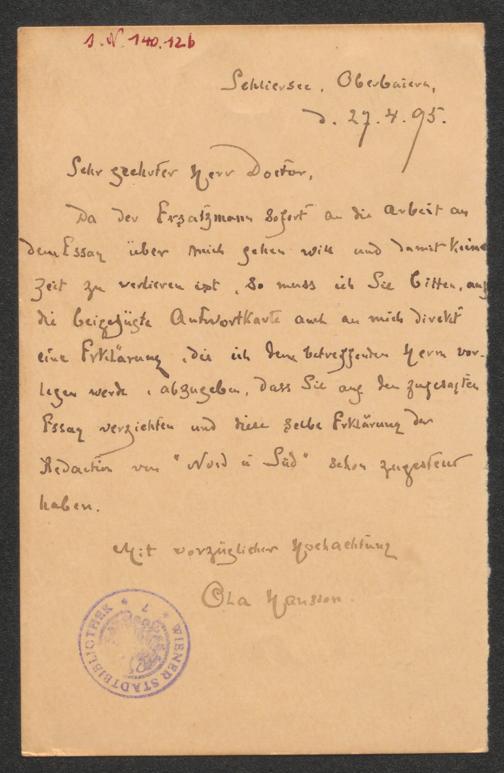 J. N. 140.126
Schliersee, Oberbaiern,
d. 27.4.95.
Sehr geehrter Herr Doctor,
Da der Ersatzmann sofort an die Arbeit an
dem Essay über mich gehen will und damit keine
Zeit zu verlieren ist, so muss ich Sie bitten, auf
die beigefügte Antwortkarte auch an mich direkt
eine Erklärung, die ich dem betreffenden Herrn vor-
legen werde, abzugeben, dass Sie auf den zugesagten
Essay verzichten und diese selbe Erklärung der
Redaction von "Nord u Süd" schon zugestellt
haben.
Mit vorzüglicher Hochachtung
Ola Hansson.
WIENER STADTBIBLIOTHEK